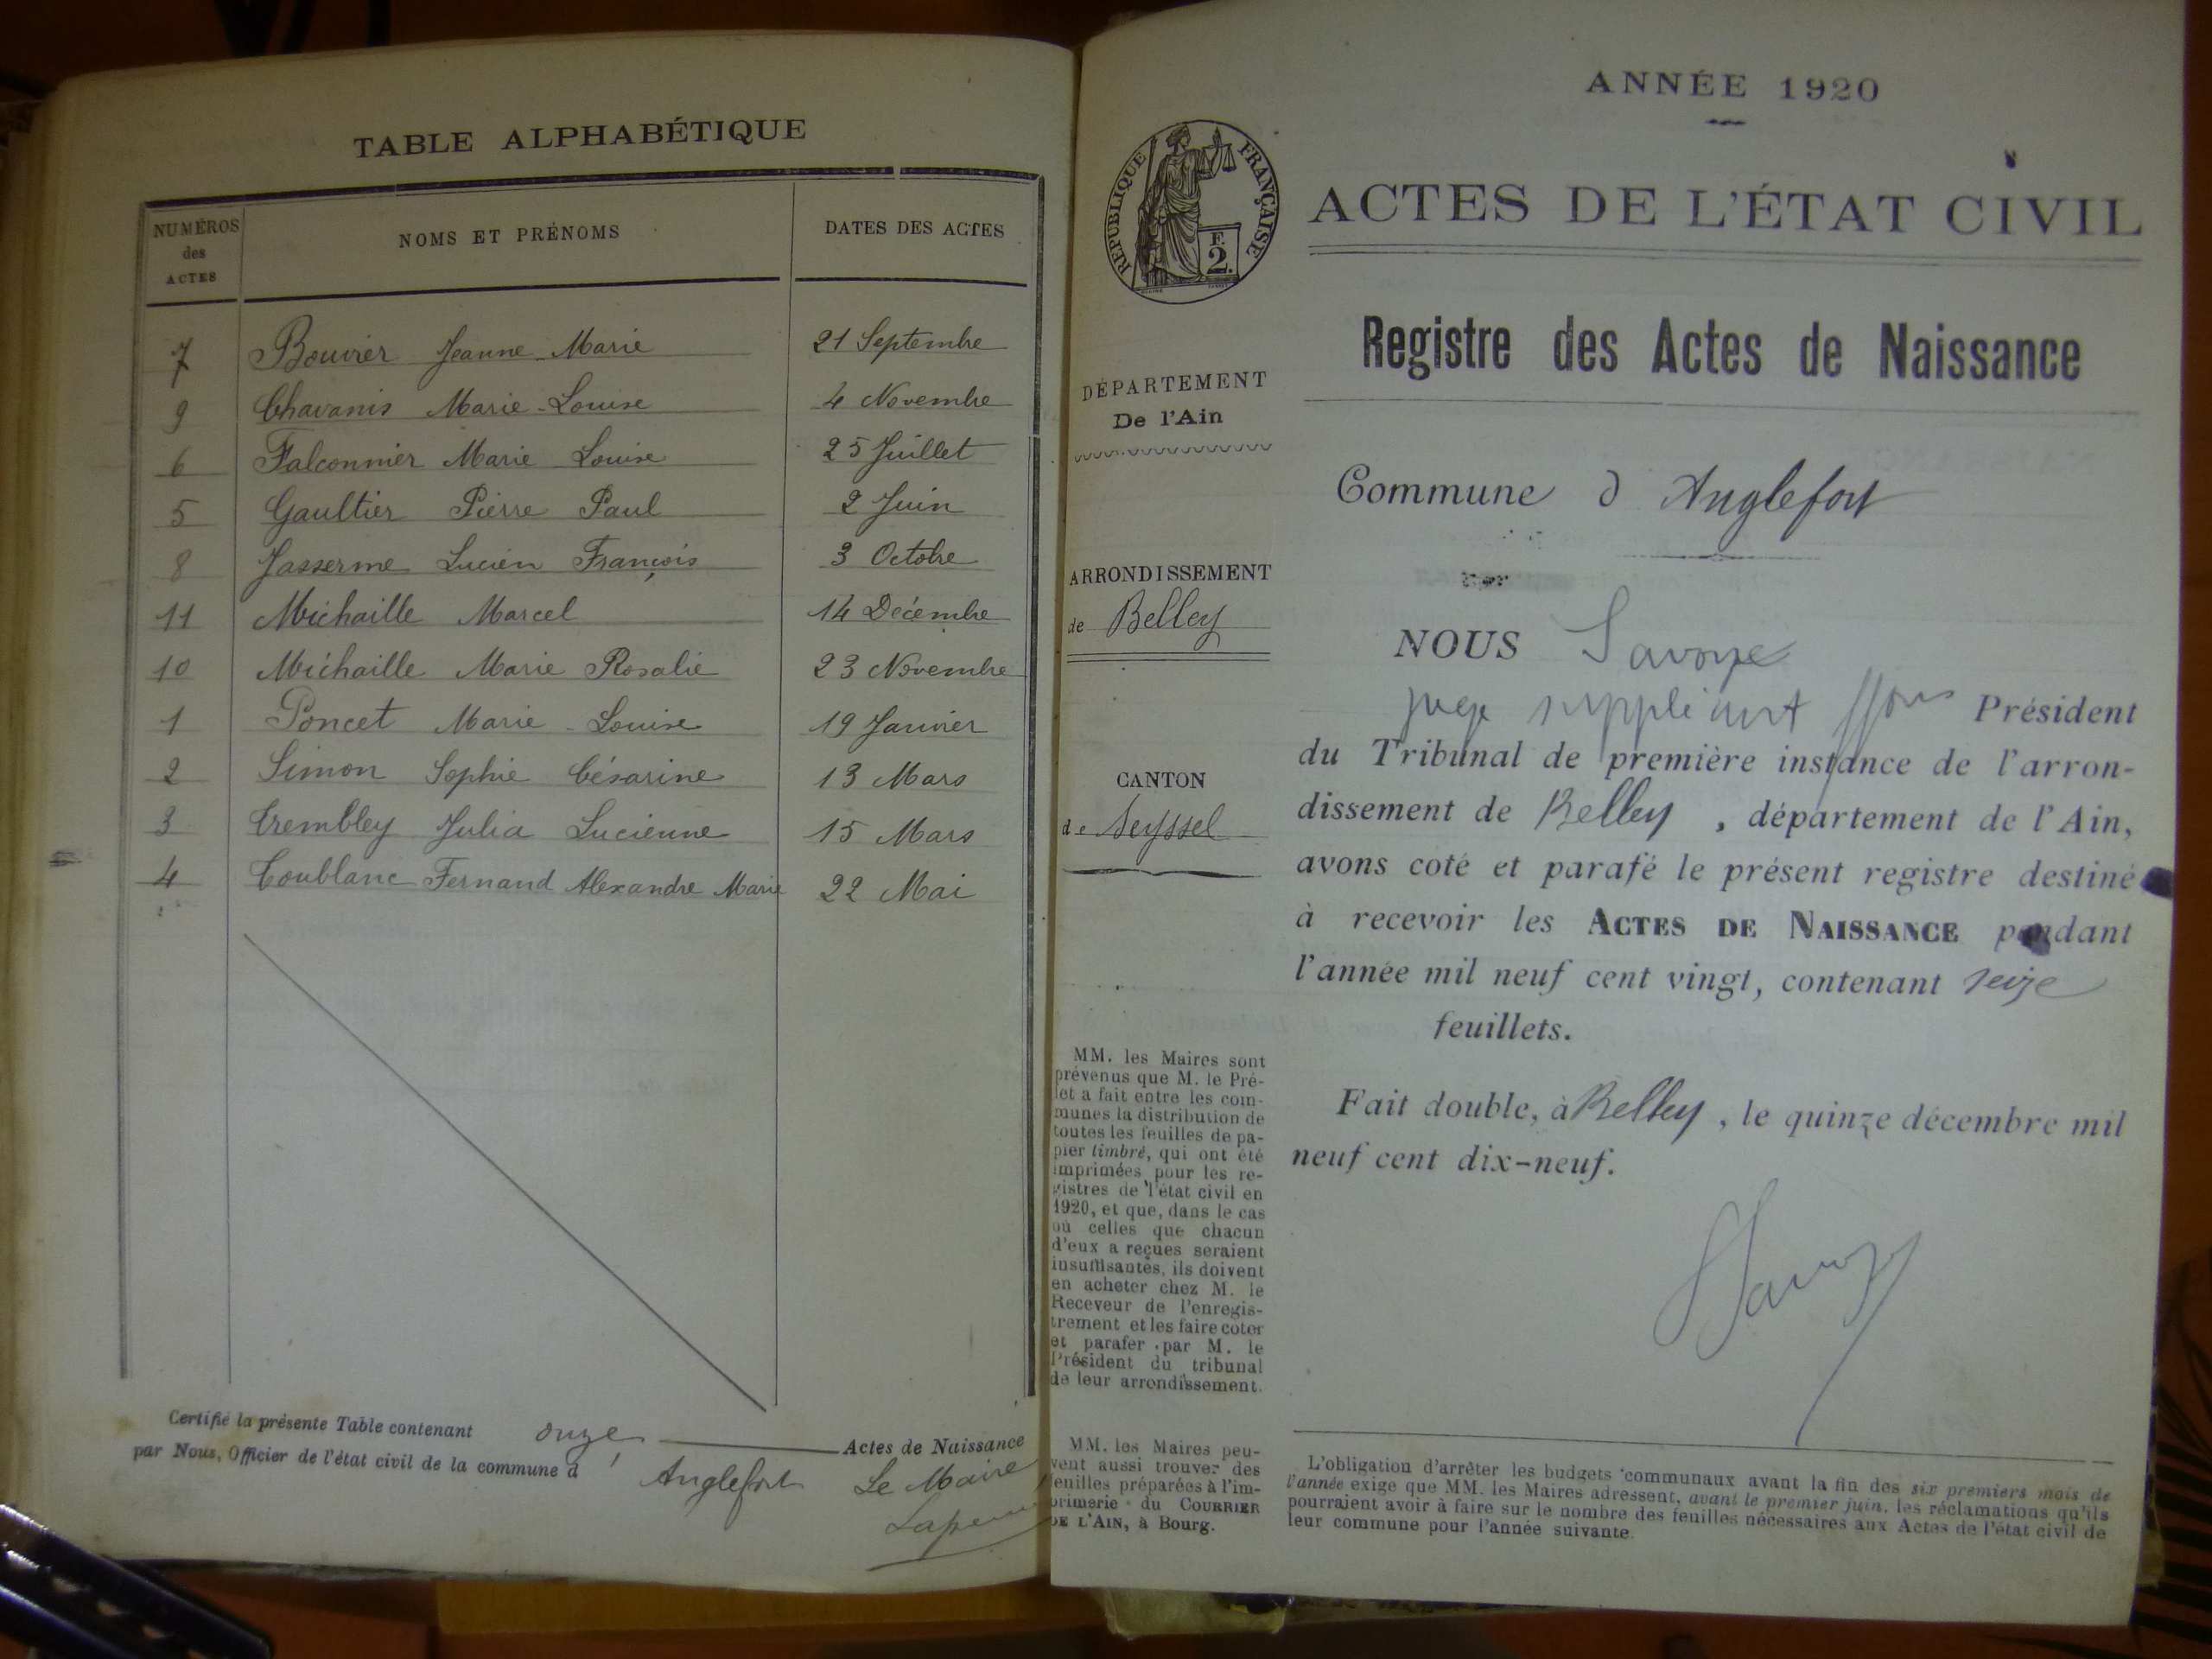 TABLE ALPHABÉTIQUE
NUMÉROS des ACTES NOMS ET PRÉNOMS DATES DES ACTES
7 Bouvier Jeanne Marie 21 Septembre
9 Chavanis Marie-Louise 4 Novembre
6 Falconnier Marie Louise 25 Juillet
5 Gaultier Pierre Paul 2 Juin
8 Jasserme Lucien François 3 Octobre
11 Michaille Marcel 14 Décembre
10 Michaille Marie Rosalie 23 Novembre
1 Poncet Marie-Louise 19 Janvier
2 Simon Sophie Césarine 13 Mars
3 Trembley Julia Lucienne 15 Mars
4 Toublanc Fernand Alexandre Marie 22 Mai
Certifié la présente Table contenant onze Actes de Naissance
par Nous, Officier de l'état civil de la commune d'Anglefort Le Maire
ANNÉE 1920
RÉPUBLIQUE FRANÇAISE
F. 2.
ACTES DE L'ÉTAT CIVIL
Registre des Actes de Naissance
DÉPARTEMENT
De l'Ain
Commune d'Anglefort
ARRONDISSEMENT
de Belley
CANTON
de Seyssel
NOUS Savoye
juge suppléant ffons Président
du Tribunal de première instance de l'arron-
dissement de Belley, département de l'Ain,
avons coté et parafé le présent registre destiné
à recevoir les ACTES DE NAISSANCE pendant
l'année mil neuf cent vingt, contenant seize
feuillets.
Fait double, à Belley, le quinze décembre mil
neuf cent dix-neuf.
MM. les Maires sont
prévenus que M. le Pré-
fet a fait entre les com-
munes la distribution de
toutes les feuilles de pa-
pier timbré, qui ont été
imprimées pour les re-
gistres de l'état civil en
1920, et que, dans le cas
où celles que chacun
d'eux a reçues seraient
insuffisantes, ils doivent
en acheter chez M. le
Receveur de l'enregis-
trement et les faire coter
et parafer par M. le
Président du tribunal
de leur arrondissement.
MM. les Maires peu-
vent aussi trouver des
feuilles préparées à l'im-
primerie du COURRIER
DE L'AIN, à Bourg.
L'obligation d'arrêter les budgets communaux avant la fin des six premiers mois de
l'année exige que MM. les Maires adressent, avant le premier juin, les réclamations qu'ils
pourraient avoir à faire sur le nombre des feuilles nécessaires aux Actes de l'état civil de
leur commune pour l'année suivante.